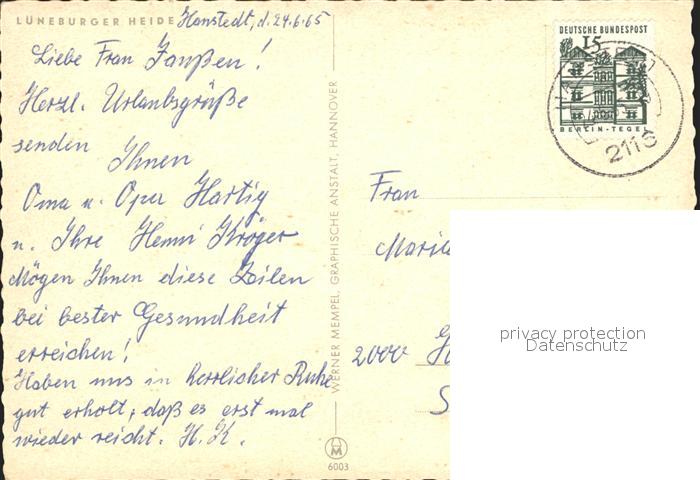 LÜNEBURGER HEIDE Hanstedt, d. 24.6.65
Liebe Frau Janßen!
Herzl. Urlaubsgrüße
senden
Ihnen
Oma u. Opa Hartig
u. Ihre Henni Kröger
Mögen Ihnen diese Zeilen
bei bester Gesundheit
erreichen!
Haben uns in herrlicher Ruhe
gut erholt, daß es erst mal
wieder reicht. H. K.
WERNER MEMPEL, GRAPHISCHE ANSTALT, HANNOVER
6003
DEUTSCHE BUNDESPOST
15
BERLIN-TEGEL
2116
Frau
2000
privacy protection
Datenschutz